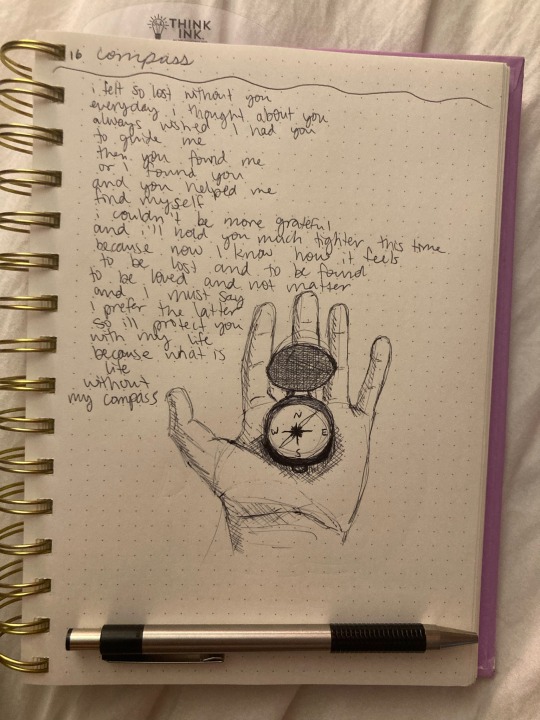 THINK
INK
16 compass
i felt so lost without you
everyday i thought about you
always wished I had you
to guide me
then you found me
or i found you
and you helped me
find myself
i couldn't be more grateful
and i'll hold you much tighter this time
because now I know how it feels
to be lost and to be found
to be loved and not matter
and I must say
i prefer the latter
so ill protect you
with my life
because what is
life
without
my compass
N
W E
S